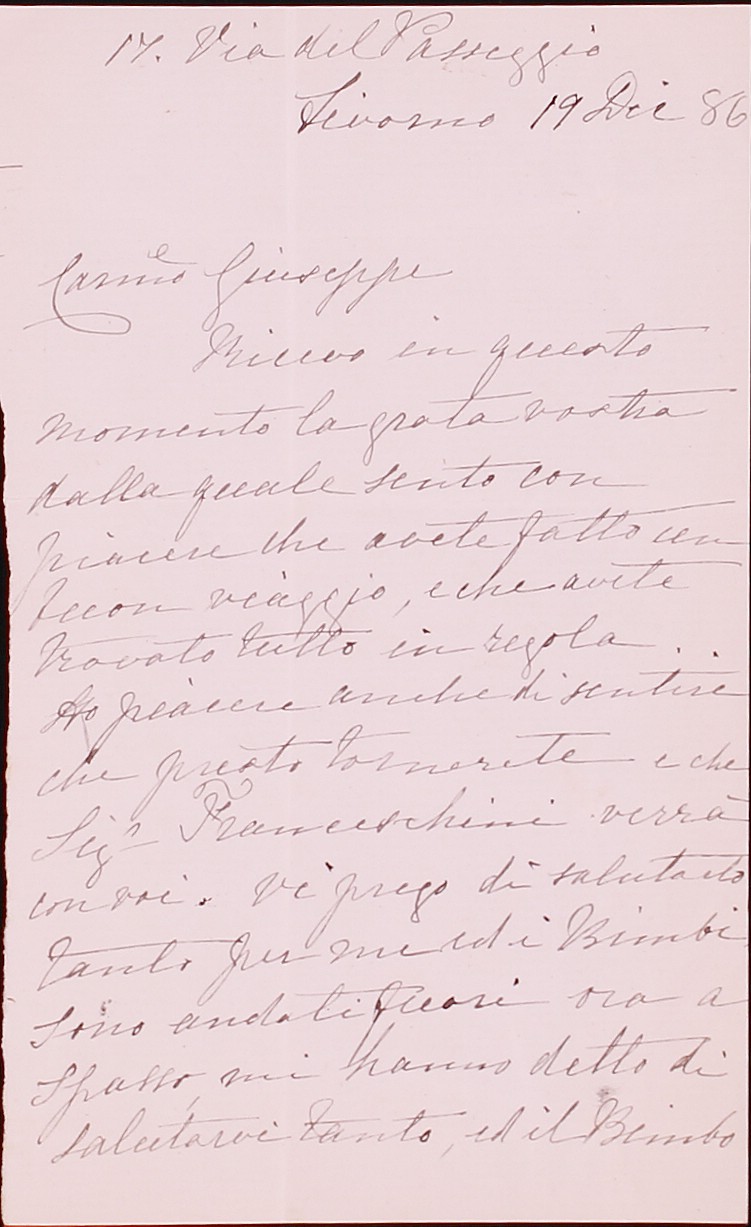 17. Via del Passeggio
Livorno 19 Dic 86
Carmo Giuseppe
Ricevo in questo
momento la grata vostra
dalla quale sento con
piacere che avete fatto un
buon viaggio, e che avete
trovato tutto in regola.
Ho piacere anche di sentire
che presto tornerete e che
Sigr Franceschini verrà
con voi. Vi prego di salutarlo
tanto per me ed i Bimbi
sono andati fuori ora a
spasso, mi hanno detto di
salutarvi tanto, ed il Bimbo